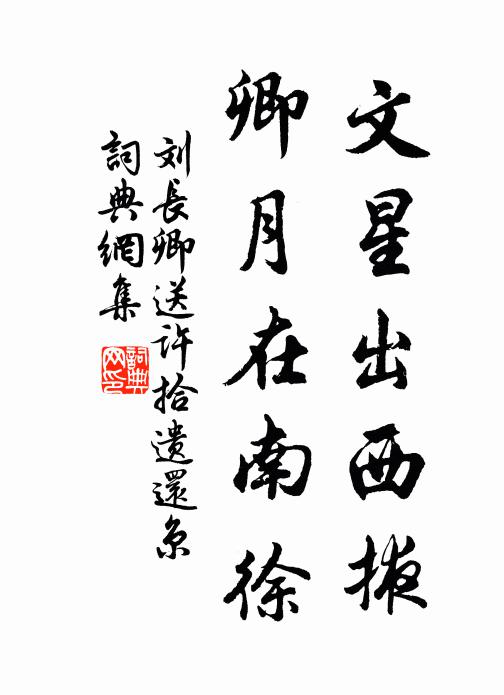 文星出西掖
卿月在南徐
刘長卿送许拾遗還京
詞典網集
詞典网印